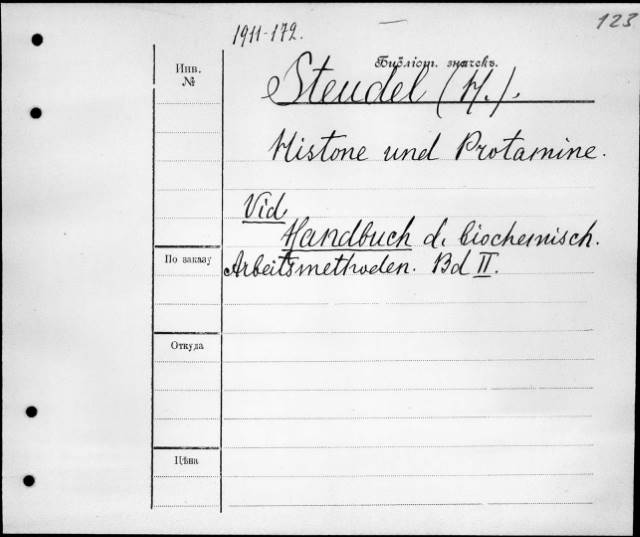 123
1911-172.
Библіот. значекъ.
Инв.
№
Steudel (H.).
Histone und Protamine.
Vid
Handbuch d. biochemisch.
По заказу
Arbeitsmethoden. Bd II.
Откуда
Цѣна